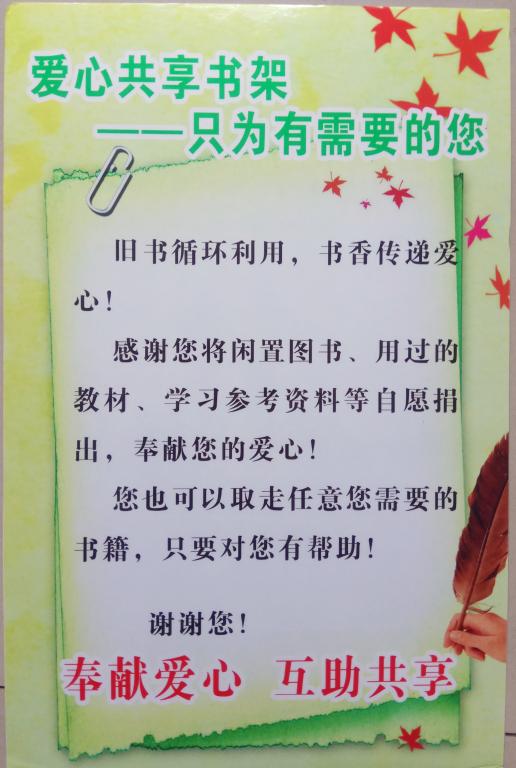 爱心共享书架
——只为有需要的您
旧书循环利用，书香传递爱
心！
感谢您将闲置图书、用过的
教材、学习参考资料等自愿捐
出，奉献您的爱心！
您也可以取走任意您需要的
书籍，只要对您有帮助！
谢谢您！
奉献爱心 互助共享